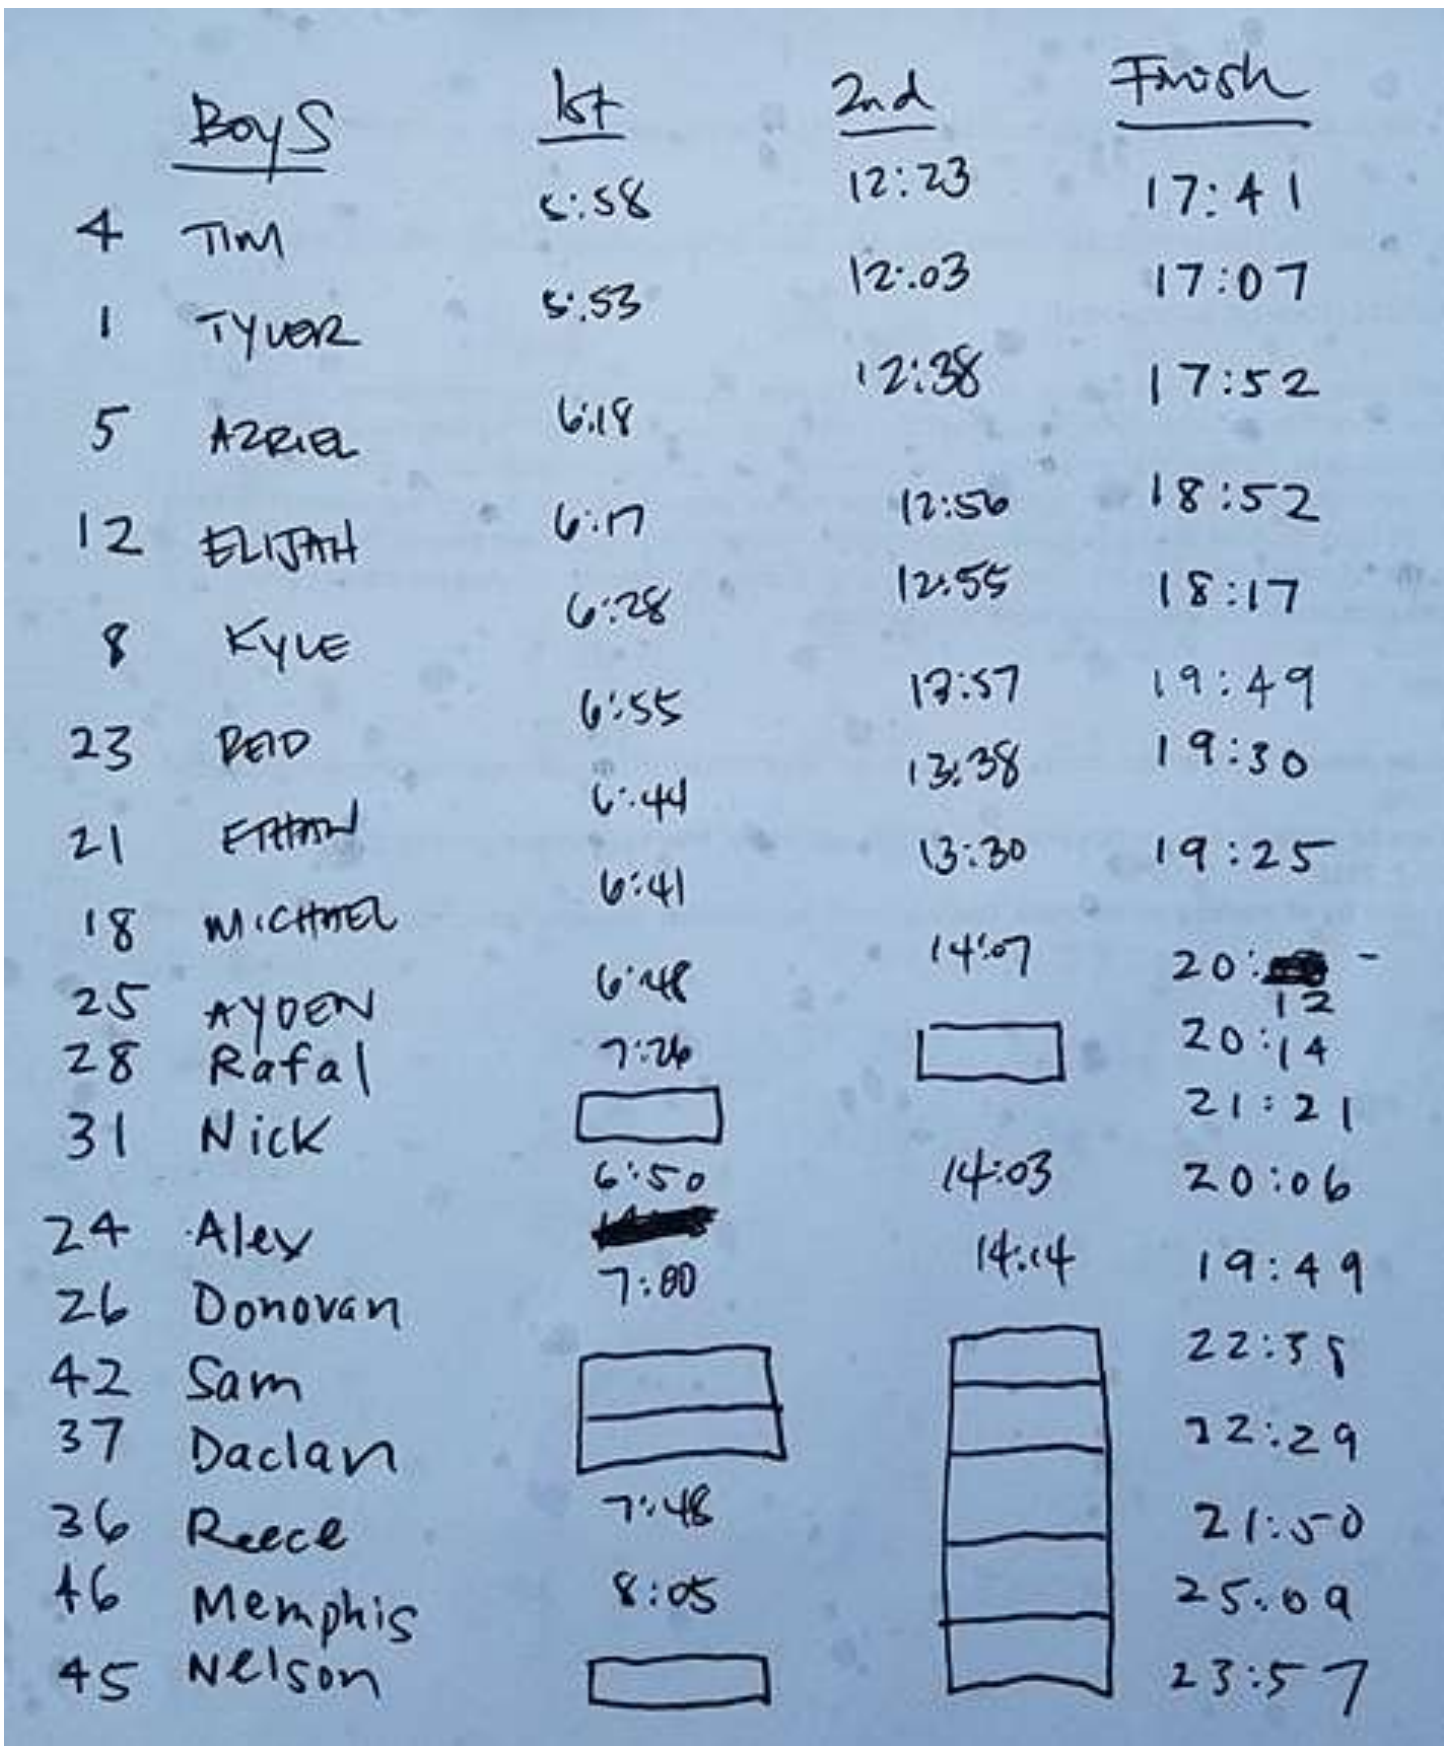 Boys 1st 2nd Finish
4 TIM 5:58 12:23 17:41
1 TYLER 5:53 12:03 17:07
5 AZRIEL 6:18 12:38 17:52
12 ELIJAH 6:17 12:56 18:52
8 KYLE 6:28 12:55 18:17
23 REID 6:55 13:57 19:49
21 ETHAN 6:44 13:38 19:30
18 MICHAEL 6:41 13:30 19:25
25 AYDEN 6:48 14:07 20:12
28 Rafal 7:26 20:14
31 Nick 21:21
24 Alex 6:50 14:03 20:06
26 Donovan 7:00 14:14 19:49
42 Sam
37 Daclan 22:29
36 Reece 7:48 21:50
46 Memphis 8:05 25:09
45 Nelson 23:57